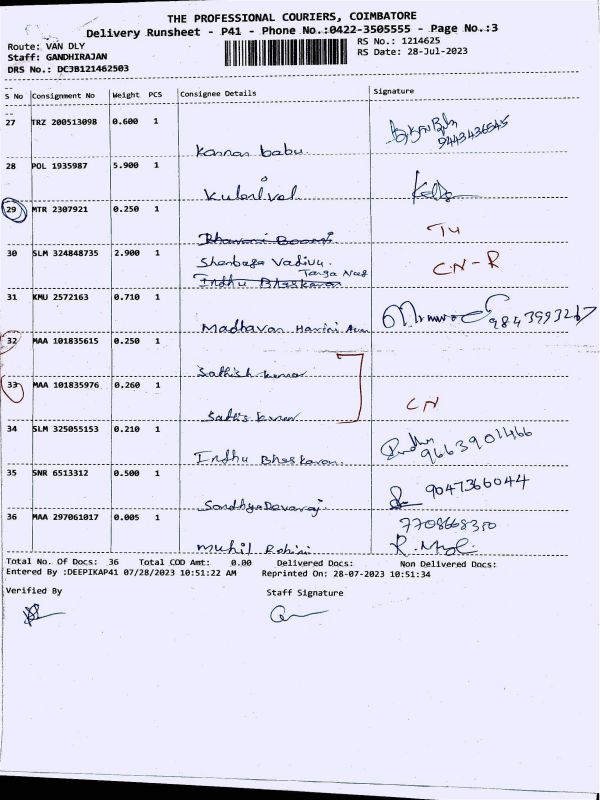 THE PROFESSIONAL COURIERS, COIMBATORE
Delivery Runsheet - P41 - Phone No.:0422-3505555 - Page No.:3
Route: VAN DLY RS No.: 1214625
Staff: GANDHIRAJAN RS Date: 28-Jul-2023
DRS No.: DCJB121462503
S No Consignment No Weight PCS Consignee Details Signature
27 TRZ 200513098 0.600 1
9443436545
Kannan babu
28 POL 1935987 5.900 1
29 MTR 2307921 0.250 1
Bhavani Boomi
30 SLM 324848735 2.900 1 Shenbaga Vadivu. CN-R
Indhu Bhaskaran
31 KMU 2572163 0.710 1
9843993267
Madhavan Harini
32 MAA 101835615 0.250 1
Sathish kumar
33 MAA 101835976 0.260 1
CN
Sathis kumar
34 SLM 325055153 0.210 1
9663901466
Indhu Bhaskaran.
35 SNR 6513312 0.500 1
9047366044
Sandhya Devaraj
36 MAA 297061017 0.005 1
7708668350
Mukil Rohini
Total No. Of Docs: 36 Total COD Amt: 0.00 Delivered Docs: Non Delivered Docs:
Entered By :DEEPIKAP41 07/28/2023 10:51:22 AM Reprinted On: 28-07-2023 10:51:34
Verified By Staff Signature